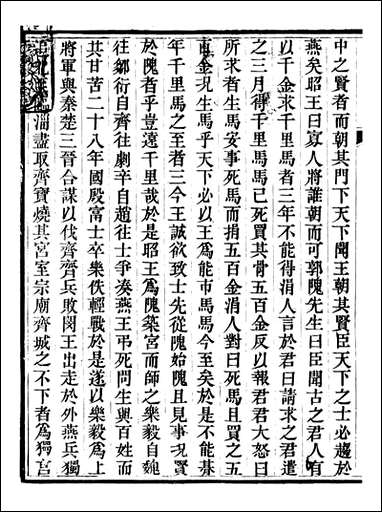 中之賢者而朝其門下天下聞王朝其賢臣天下之士必趨於
燕矣昭王曰寡人將誰朝而可郭隗先生曰臣聞古之君人有
以千金求千里馬者三年不能得涓人言於君曰請求之君遣
之三月得千里馬馬已死買其骨五百金反以報君君大怒曰
所求者生馬安事死馬而捐五百金涓人對曰死馬且買之五
百金況生馬乎天下必以王爲能市馬馬今至矣於是不能朞
年千里馬之至者三今王誠欲致士先從隗始隗且見事況賢
於隗者乎豈遠千里哉於是昭王爲隗築宮而師之樂毅自魏
往鄒衍自齊往劇辛自趙往士爭湊燕燕王弔死問生與百姓同
其甘苦二十八年國殷富士卒樂佚輕戰於是遂以樂毅爲上
將軍與秦楚三晉合謀以伐齊齊兵敗閔王出走於外燕兵獨
淄盡取齊寶燒其宮室宗廟齊城之不下者爲獨宮